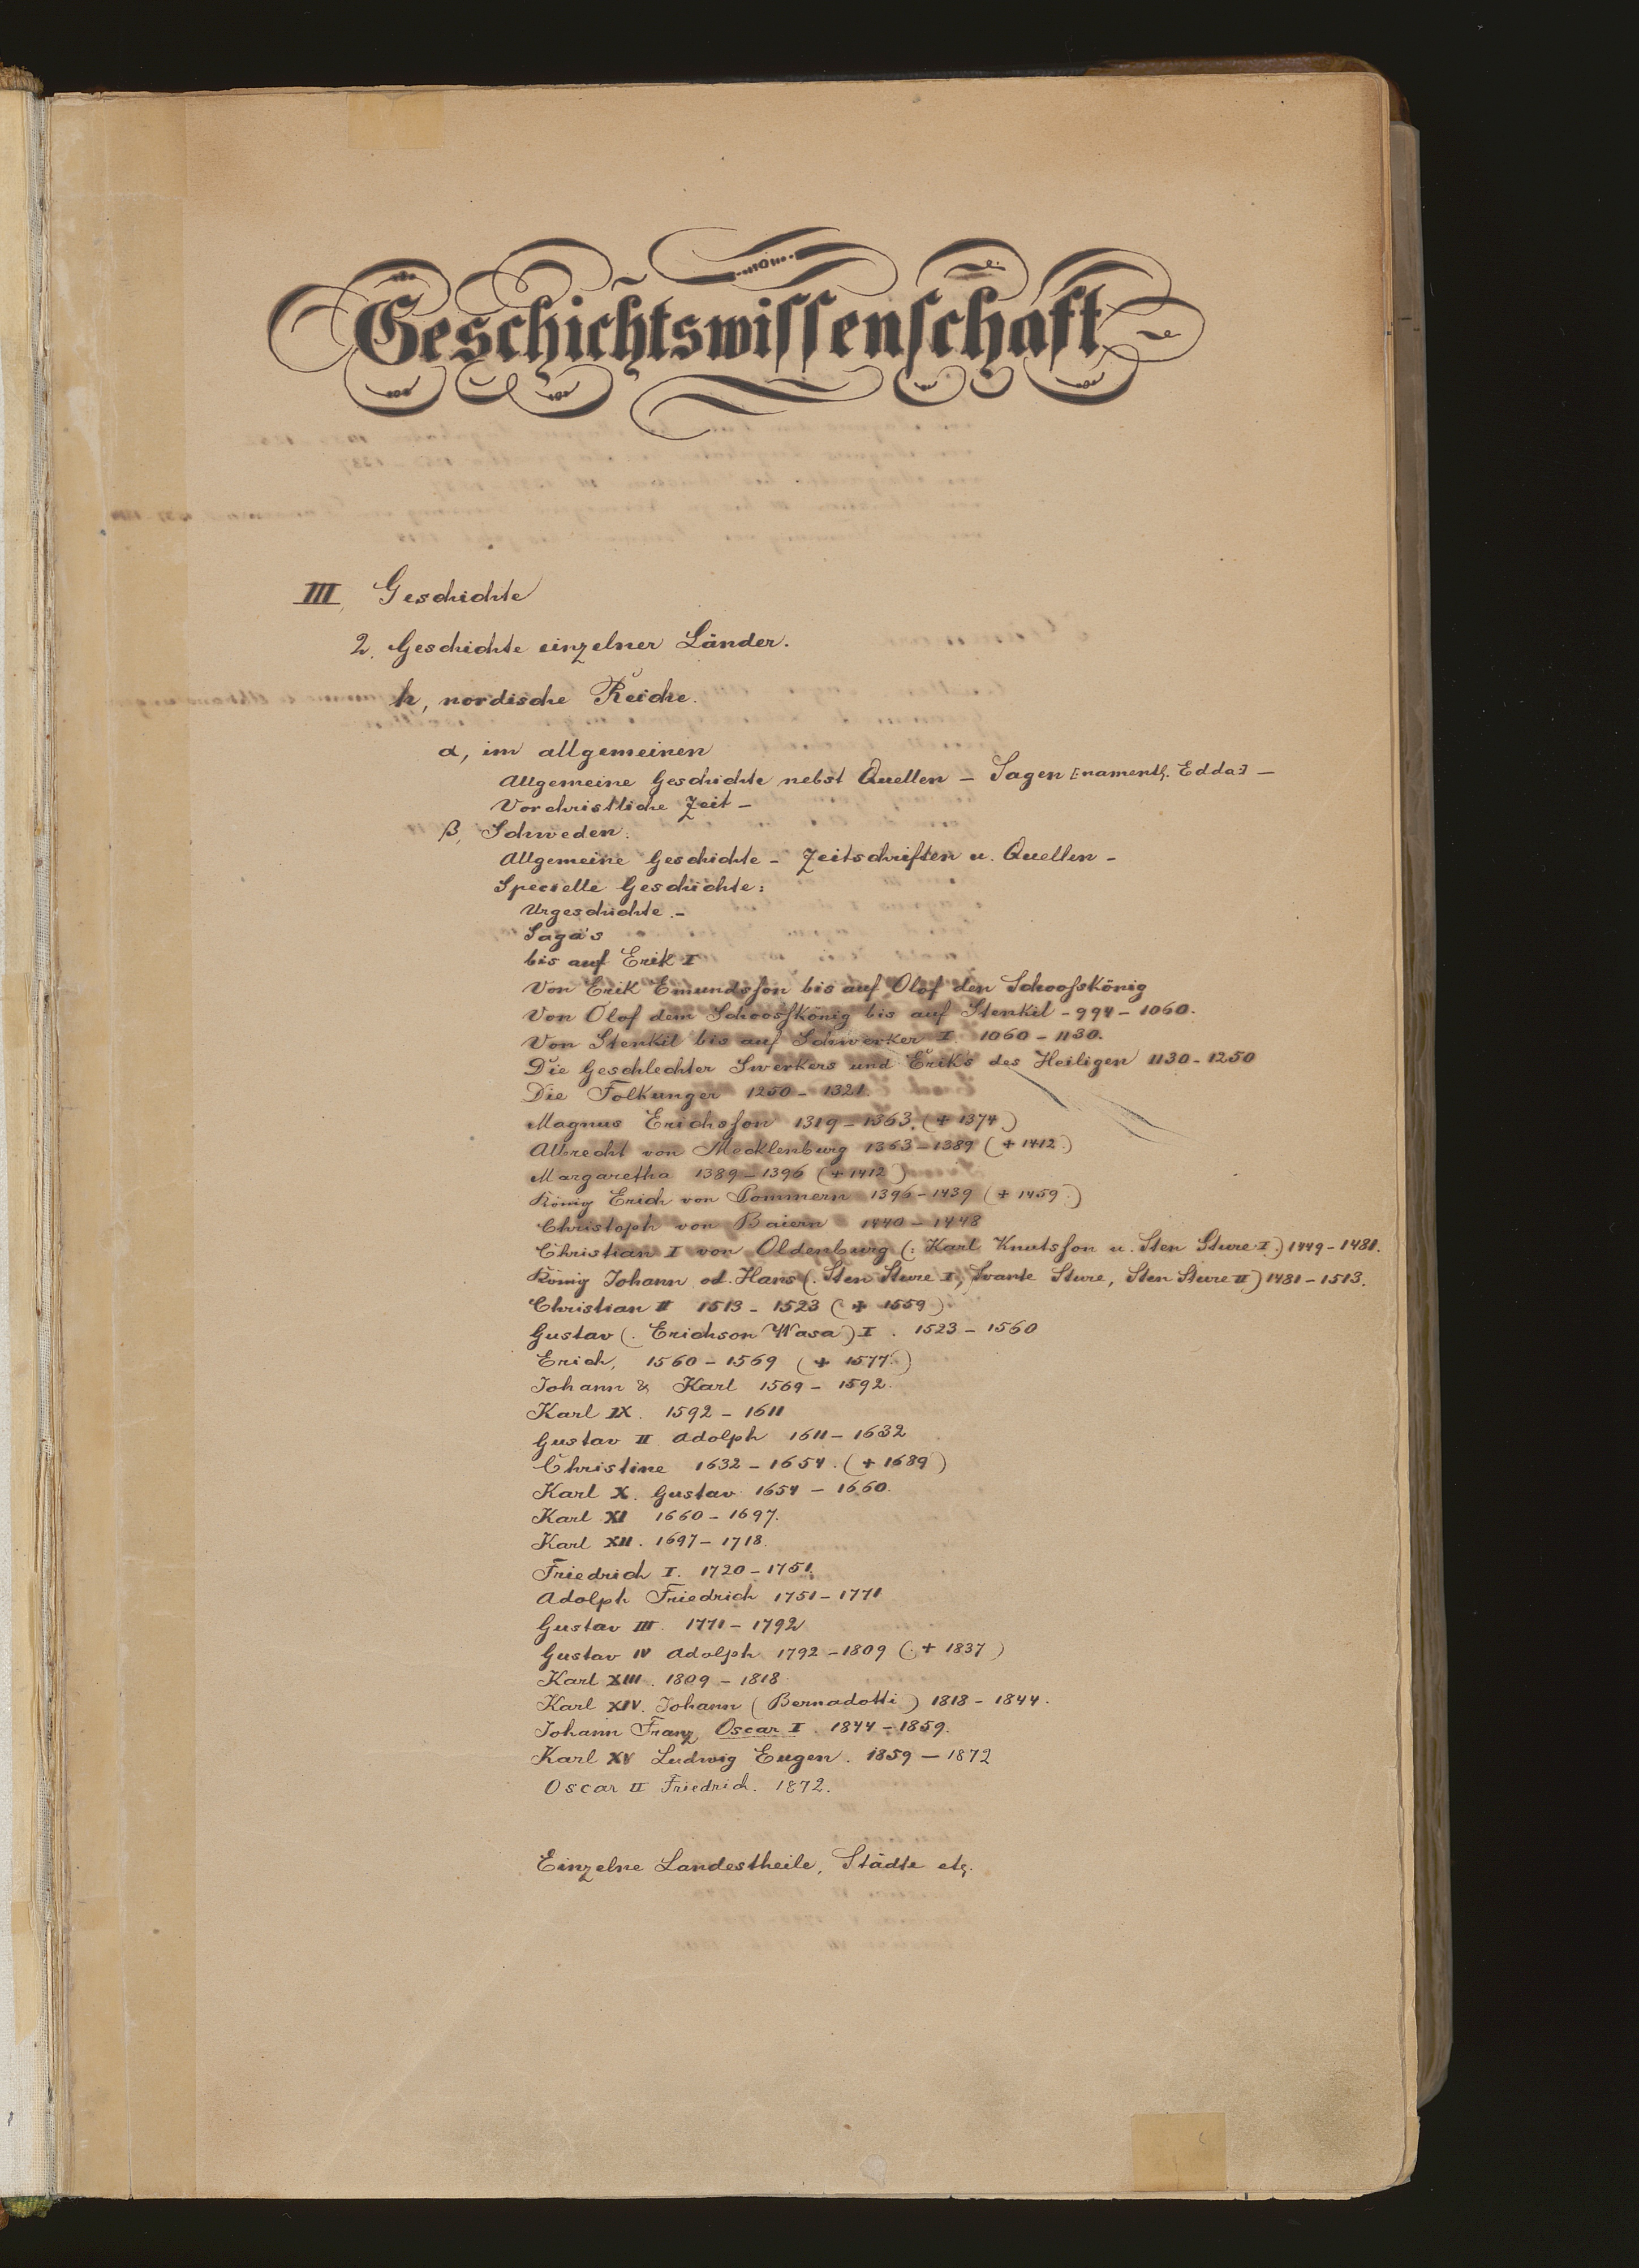 Geschichtswissenschaft
III, Geschichte
2. Geschichte einzelner Länder.
h, nordische Reiche.
α, im allgemeinen
Allgemeine Geschichte nebst Quellen – Sagen [namentl. Edda] –
Vorchristliche Zeit –
β, Schweden.
Allgemeine Geschichte – Zeitschriften u. Quellen –
Specielle Geschichte:
Urgeschichte. –
Saga's
bis auf Erik I
Von Erik Emundsson bis auf Olof den Schooßkönig
Von Olof dem Schoosskönig bis auf Stenkil – 994 – 1060.
Von Stenkil bis auf Schwerker I 1060 – 1130.
Die Geschlechter Swerkers und Eriks des Heiligen 1130 – 1250
Die Folkunger 1250 – 1321.
Magnus Erichsson 1319 – 1363. (+ 1374.)
Albrecht von Mecklenburg 1363 – 1389 (+ 1412.)
Margaretha 1389 – 1396 (+ 1412)
König Erich von Pommern 1396 – 1439 (+ 1459.)
Christoph von Baiern 1440 – 1448
Christian I von Oldenburg (: Karl Knutsson u. Sten Sture I.) 1449 – 1481.
König Johann od. Hans (. Sten Sture I, Svante Sture, Sten Sture II) 1481 – 1513.
Christian II 1513 – 1523 (+ 1559)
Gustav (. Erichson Wasa) I. 1523 – 1560
Erich, 1560 – 1569 (+ 1577.)
Johann & Karl 1569 – 1592.
Karl IX. 1592 – 1611
Gustav II Adolph 1611 – 1632
Christine 1632 – 1654. (+ 1689)
Karl X. Gustav 1654 – 1660.
Karl XI 1660 – 1697.
Karl XII. 1697 – 1718.
Friedrich I. 1720 – 1751.
Adolph Friedrich 1751 – 1771
Gustav III. 1771 – 1792
Gustav IV Adolph 1792 – 1809 (. + 1837)
Karl XIII. 1809 – 1818.
Karl XIV. Johann (Bernadotti) 1818 – 1844.
Johann Franz Oscar I. 1844 – 1859.
Karl XV Ludwig Eugen. 1859 – 1872
Oscar II Friedrich. 1872.
Einzelne Landestheile, Städte etc.